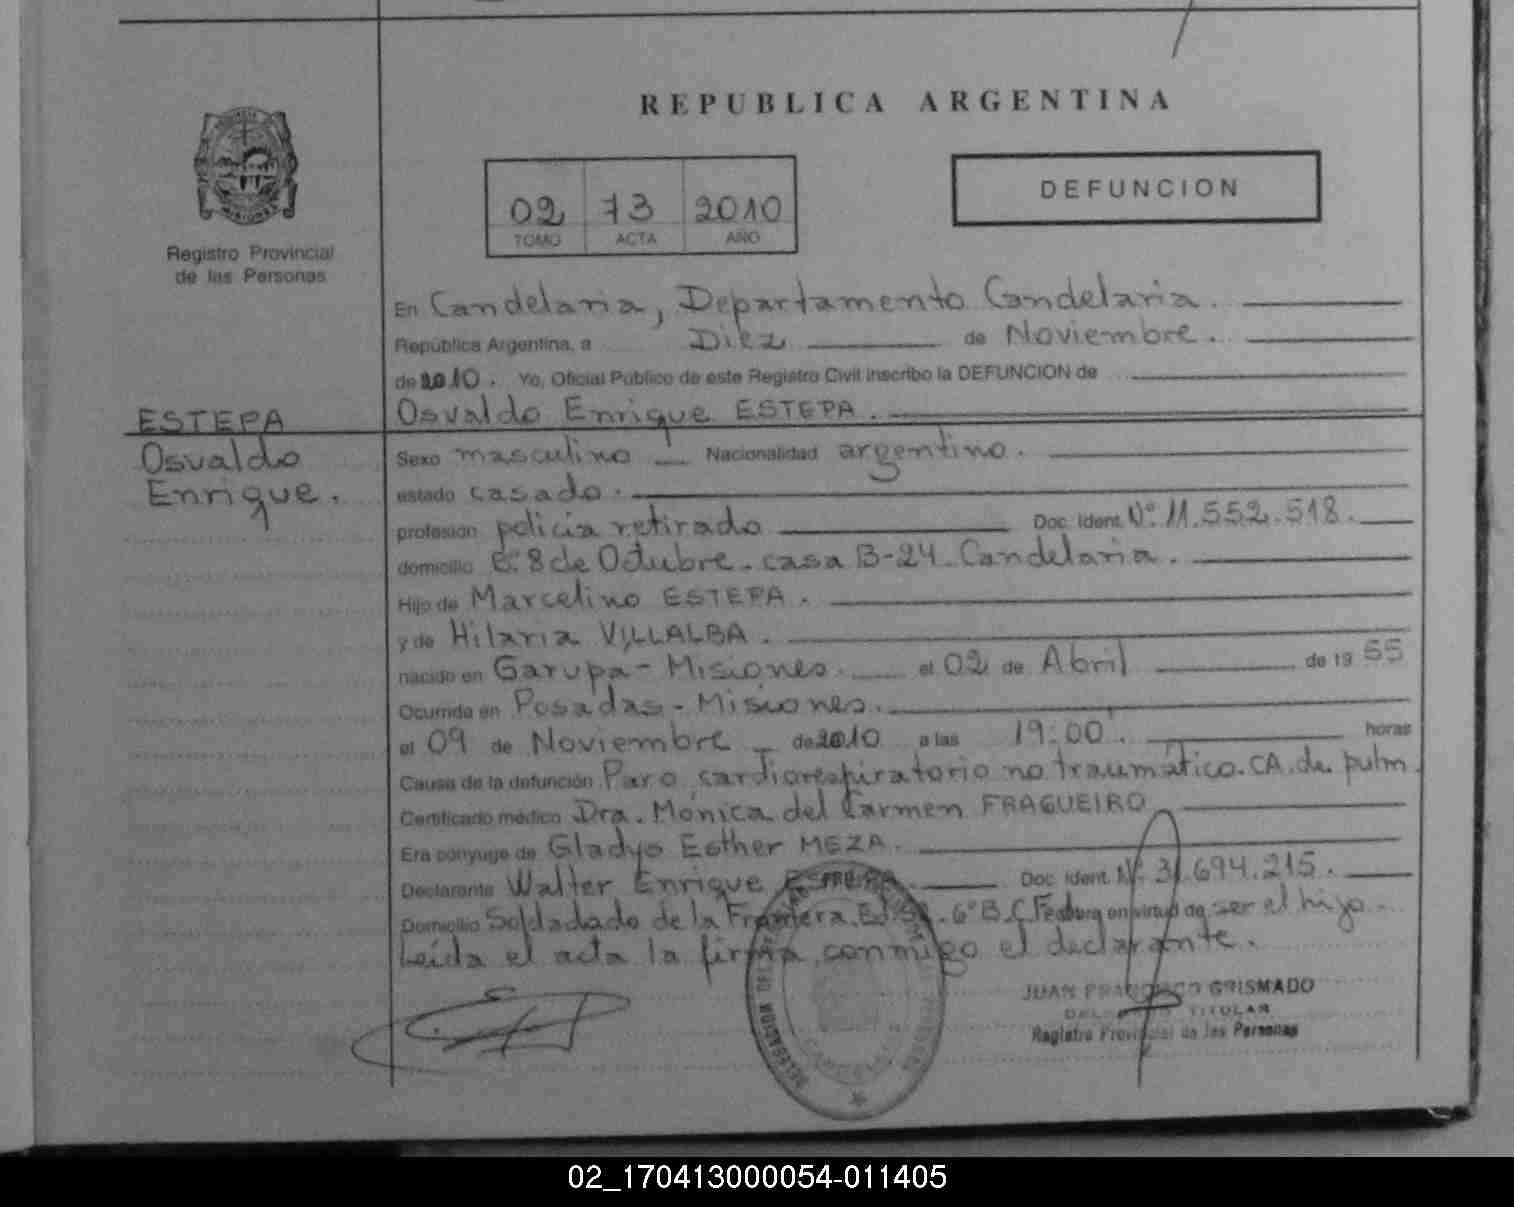 REPUBLICA ARGENTINA
02 73 2010
TOMO ACTA AÑO
DEFUNCION
MISIONES
Registro Provincial
de las Personas
En Candelaria, Departamento Candelaria.
República Argentina, a Diez de Noviembre.
de 2010. Yo, Oficial Público de este Registro Civil inscribo la DEFUNCION de
ESTEPA
Osvaldo
Enrique.
Osvaldo Enrique ESTEPA.
Sexo masculino Nacionalidad argentino.
estado casado.
profesión policía retirado Doc. Ident. Nº 11.552.518.
domicilio Bº 8 de Octubre - casa B-24 - Candelaria.
Hijo de Marcelino ESTEPA.
y de Hilaria VILLALBA.
nacido en Garupa - Misiones. el 02 de Abril de 19 55
Ocurrida en Posadas - Misiones.
el 09 de Noviembre de 2010 a las 19:00. horas
Causa de la defunción Paro cardiorespiratorio no traumático. CA. de pulm.
Certificado médico Dra. Mónica del Carmen FRAGUEIRO
Era cónyuge de Gladys Esther MEZA.
Declarante Walter Enrique ESTEPA. Doc. Ident. Nº 31.694.215.
Domicilio Soldadado de la Frontera Ed. 6º B. en virtud de ser el hijo.
Leída el acta la firma conmigo el declarante.
JUAN FRANCISCO GRISMADO
DELEGADO TITULAR
Registro Provincial de las Personas
02_170413000054-011405